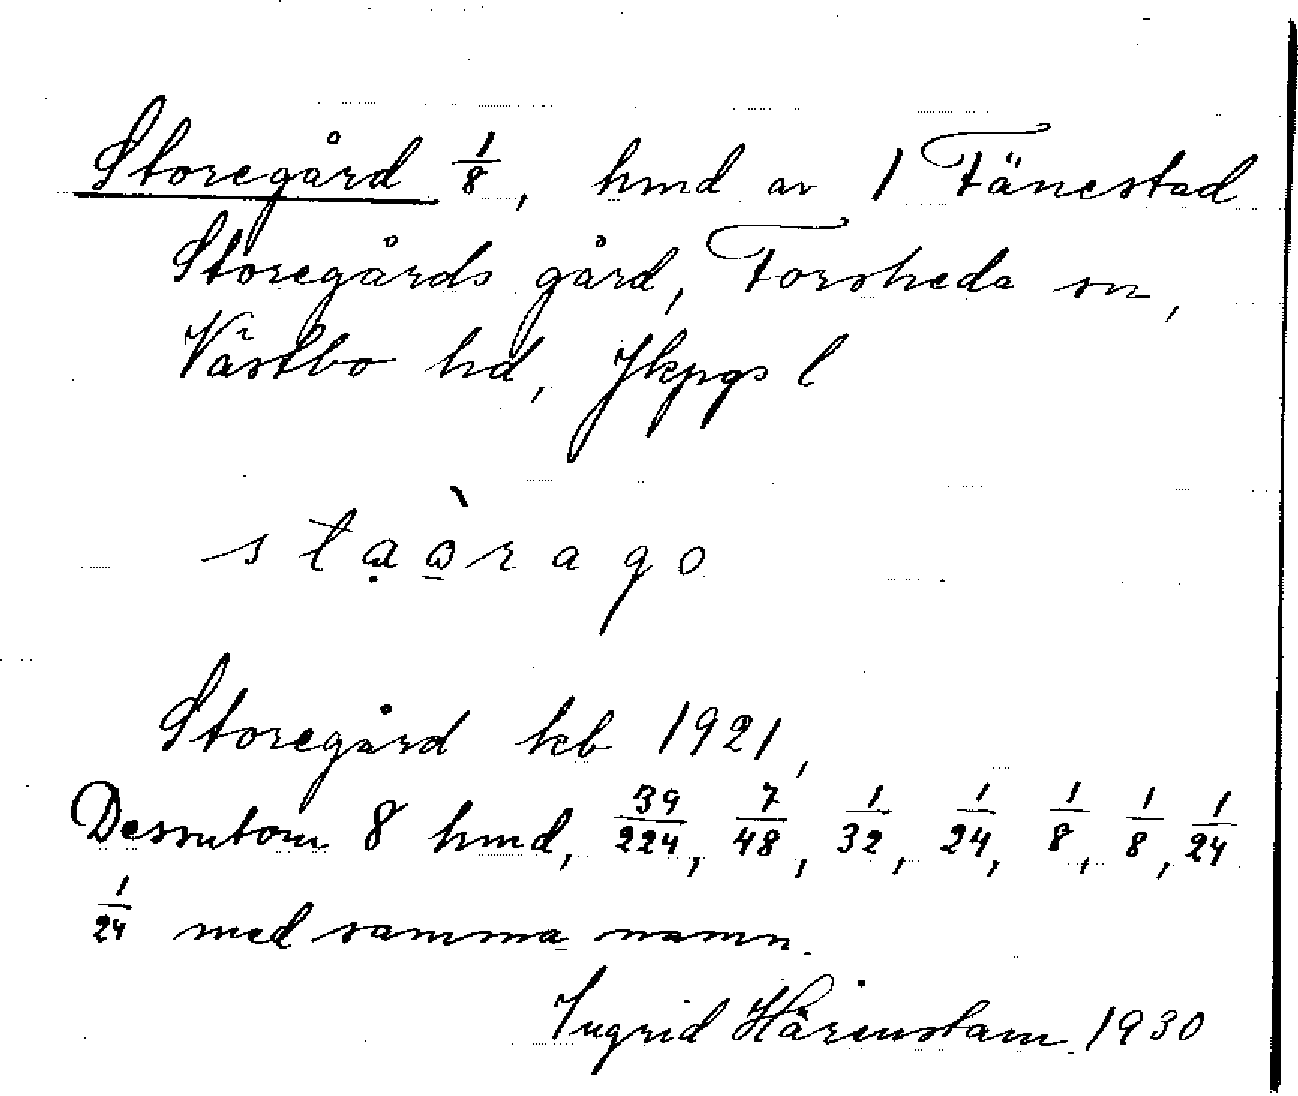 Storegård 1/8, hmd av 1 Tånestad
Storegårds gård, Torskeda sn,
Västbo hd, Jkpgs l
s t a ò r a g o
Storegård kb 1921,
Dessutom 8 hmd, 39/224, 7/48, 1/32, 1/24, 1/8, 1/8, 1/24
1/24 med samma namn.
Ingrid Härenstam 1930